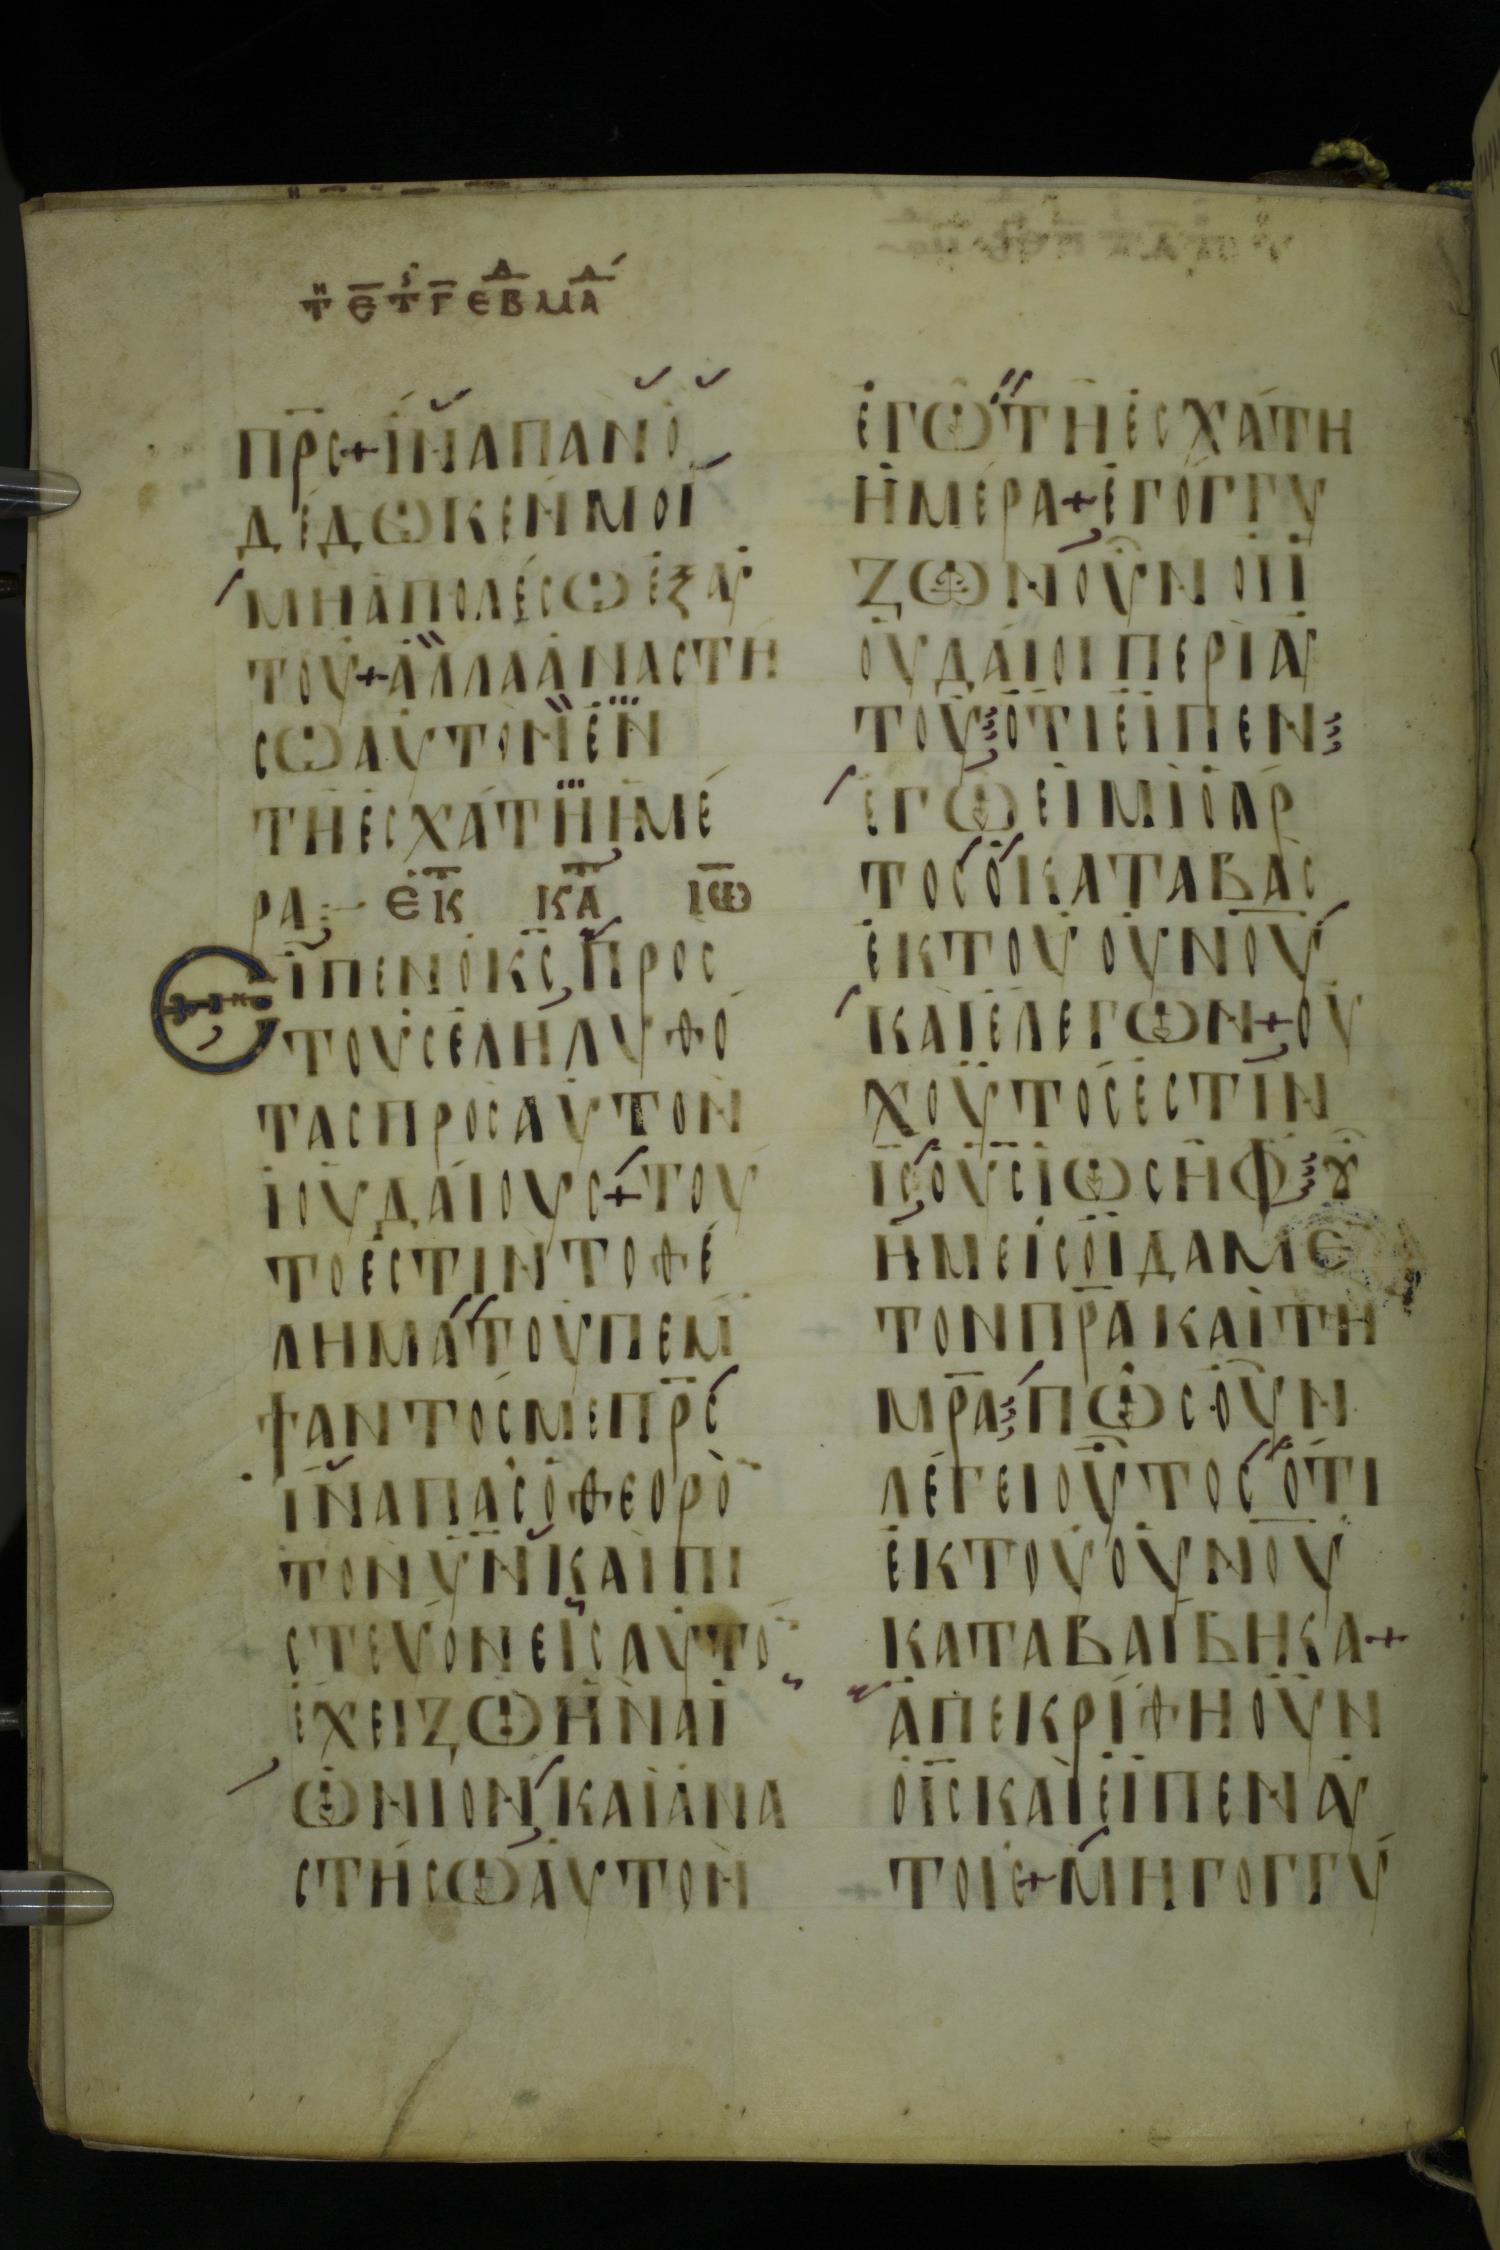 Τῌ Ε̄ Τ̄ς Γ̄ ΕΒΔ̄ΜΑΔ́
Π̅Ρ̅Σ+ΙΝΑΠΑΝΟ
ΔΕΔΩΚΕΝΜΟΙ
ΜΗΑΠΟΛΕΣΩΕΞΑΥ
ΤΟΥ+ΑΛΛΑΑΝΑΣΤΗ
ΣΩΑΥΤΟΝΕΝ
ΤΗΕΣΧΑΤΗΗΜΕ
ΡΑ:— ΕΚΤ ΚΑΤ ΙΩ
ΕΙΠΕΝΟΚ̅Σ̅ΠΡΟΣ
ΤΟΥΣΕΛΗΛΥΘΟ
ΤΑΣΠΡΟΣΑΥΤΟΝ
ΙΟΥΔΑΙΟΥΣ+ΤΟΥ
ΤΟΕΣΤΙΝΤΟΘΕ
ΛΗΜΑΤΟΥΠΕΜ
ΨΑΝΤΟΣΜΕΠ̅Ρ̅Σ
ΙΝΑΠΑΣΟΘΕΟΡΟ̅
ΤΟΝΥ̅Ν̅ΚΑΙΠΙ
ΣΤΕΥΟΝΕΙΣΑΥΤΟ̅
ΕΧΕΙΖΩΗΝΑΙ
ΩΝΙΟΝΚΑΙΑΝΑ
ΣΤΗΣΩΑΥΤΟΝ
ΕΓΩΤΗΕΣΧΑΤΗ
ΗΜΕΡΑ+ΕΓΟΓΓΥ
ΖΩΝΟΥΝΟΙΙ
ΟΥΔΑΙΟΙΠΕΡΙΑΥ
ΤΟΥ⁝ΟΤΙΕΙΠΕΝ⁝
ΕΓΩΕΙΜΙΟΑΡ
ΤΟΣΟΚΑΤΑΒΑΣ
ΕΚΤΟΥΟΥΝ̅Ο̅Υ̅
ΚΑΙΕΛΕΓΩΝ+ΟΥ
ΧΟΥΤΟΣΕΣΤΙΝ
Ι̅Σ̅ΟΥ̅Σ̅ΙΩΣΗΦ⁝Ȣ
ΗΜΕΙΣΟΙΔΑΜΕ
ΤΟΝΠ̅Ρ̅Α̅ΚΑΙΤΗ
Μ̅Ρ̅Α̅⁝ΠΩΣΟΥΝ
ΛΕΓΕΙΟΥΤΟΣΟΤΙ
ΕΚΤΟΥΟΥΝ̅Ο̅Υ̅
ΚΑΤΑΒΑΙΒΗΚΑ+
ΑΠΕΚΡΙΘΗΟΥΝ
ΟΙ̅Σ̅ΚΑΙΕΙΠΕΝΑΥ
ΤΟΙΣ+ΜΗΓΟΓΓΥ